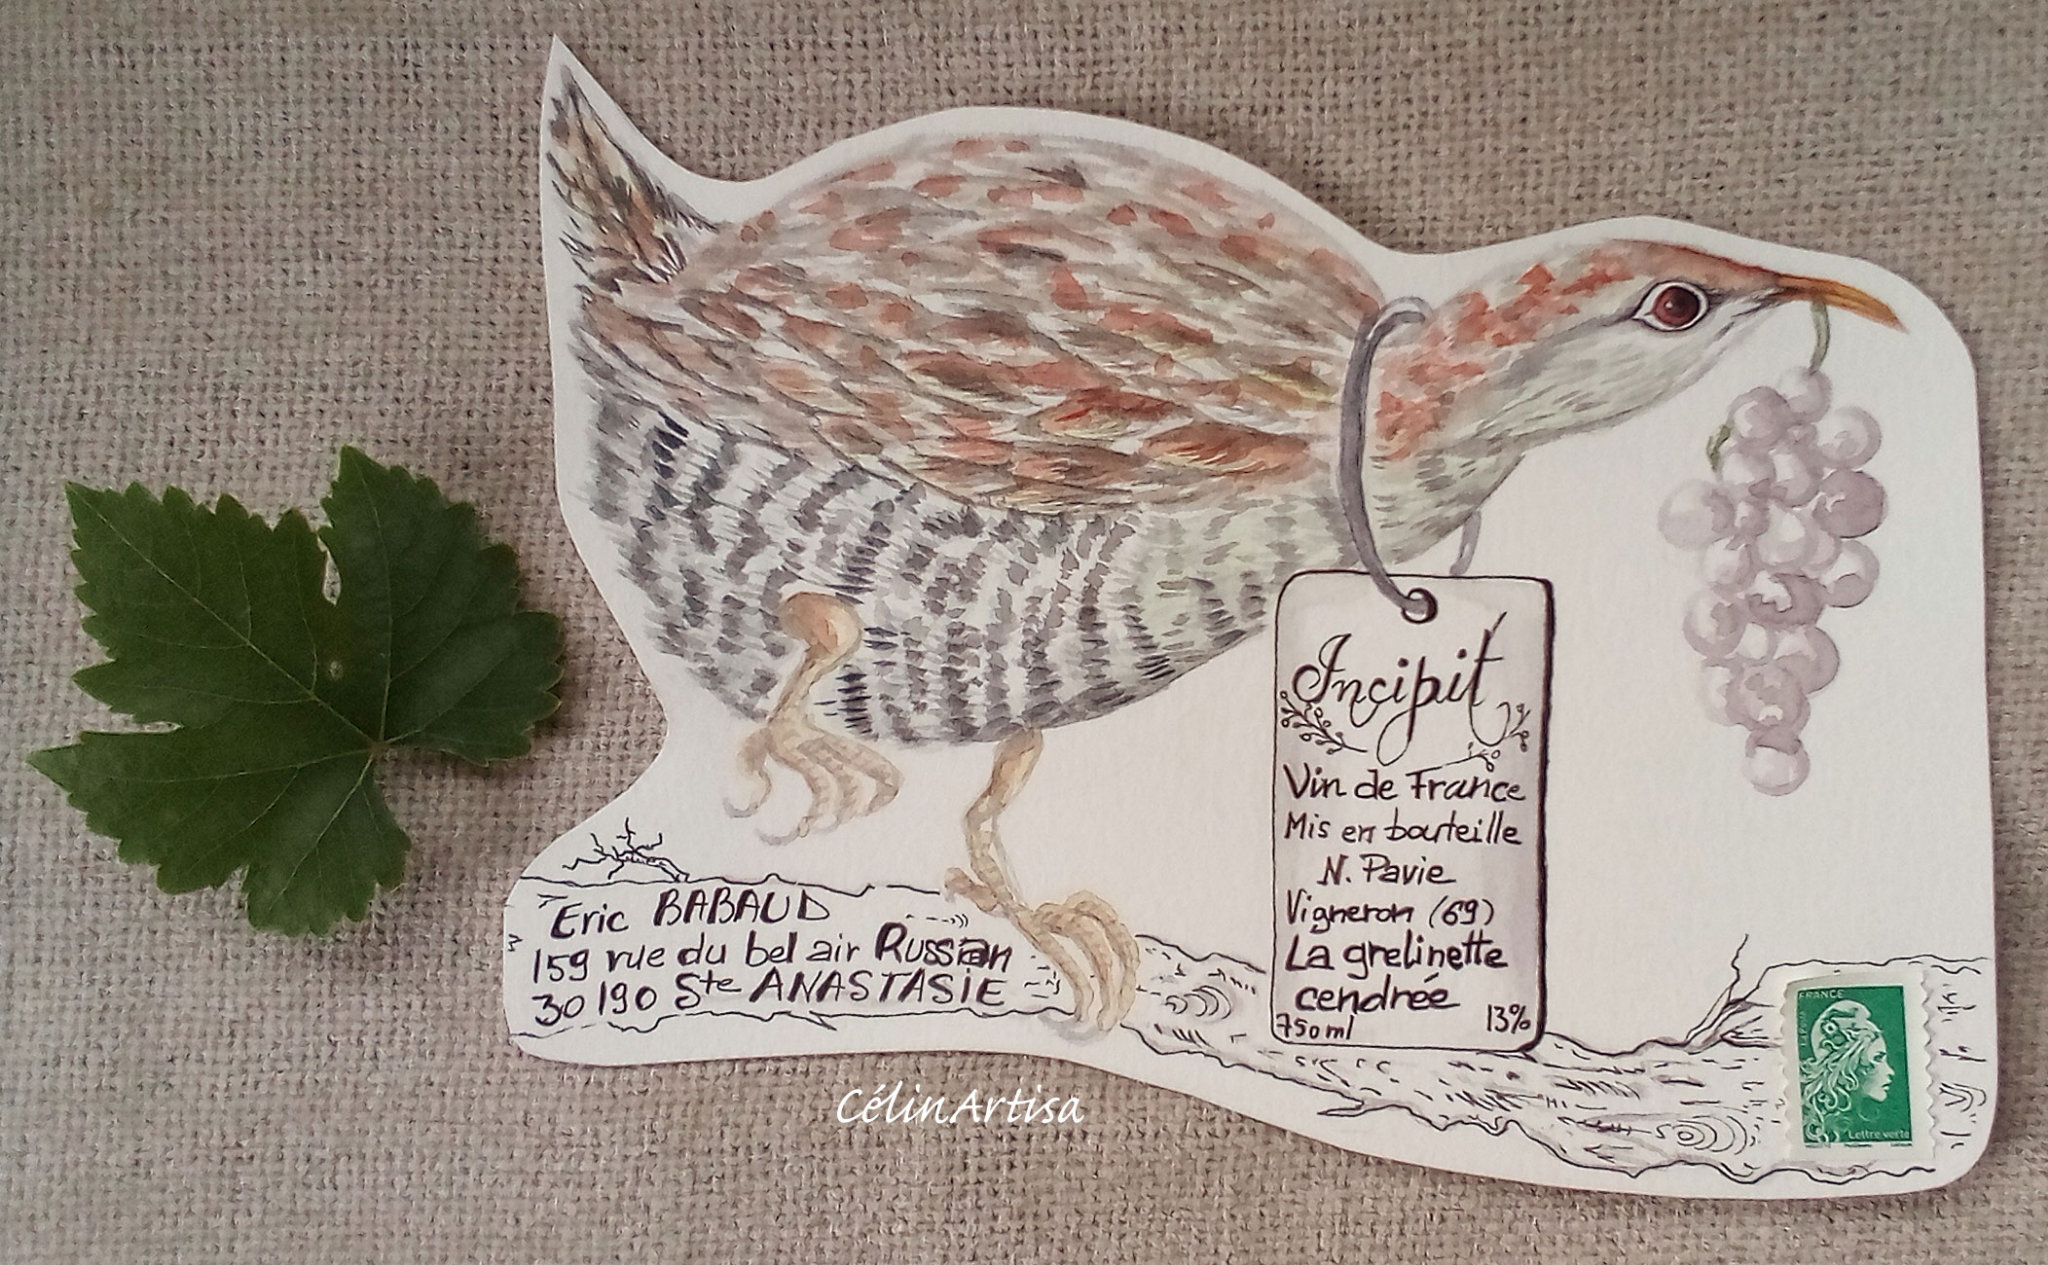 Incipit
Vin de France
Mis en bouteille
N. Pavie
Vigneron (69)
La grelinette
cendrée
750ml 13%
Eric BABAUD
159 rue du bel air Russian
30190 Ste ANASTASIE
FRANCE
Lettre verte
CélinArtisa